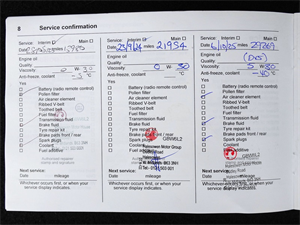 8 Service confirmation
Service Interim Main
Date miles
Engine oil
Quality
Viscosity 0 W- 30
Anti-freeze, coolant -5 °C
Yes
Battery (radio remote control)
Pollen filter
Air cleaner element
Ribbed V-belt
Toothed belt
Fuel filter
Transmission fluid
Brake fluid
Tyre repair kit
Brake pads front / rear
Spark plugs
Coolant
Fuel additive
Next service:
Date mileage
Whichever occurs first, or when your
service display indicates.
Service Interim Main
Date 23/9/24 miles 21954
Engine oil
Quality
Viscosity 0 W- 30
Anti-freeze, coolant °C
Yes
Battery (radio remote control)
Pollen filter
Air cleaner element
Ribbed V-belt
Toothed belt
Fuel filter
Transmission fluid
Brake fluid
Tyre repair kit
Brake pads front / rear
Spark plugs
Coolant
Fuel additive
Next service:
Date mileage
Whichever occurs first, or when your
service display indicates.
Service Interim Main
Date miles 29769
Engine oil
Quality
Viscosity W- 30
Anti-freeze, coolant -40 °C
Yes
Battery (radio remote control)
Pollen filter
Air cleaner element
Ribbed V-belt
Toothed belt
Fuel filter
Transmission fluid
Brake fluid
Tyre repair kit
Brake pads front / rear
Spark plugs
Coolant
Fuel additive
Next service:
Date mileage
Whichever occurs first, or when your
service display indicates.